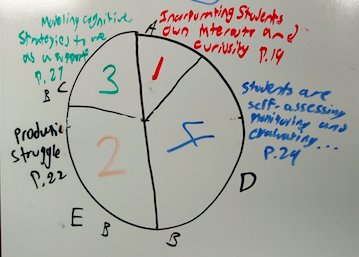 Modeling cognitive
strategies to use
as a support
P.27
A Incorporating students
own interests and
curiosity P.19
students are
self-assessing
monitoring and
evaluating...
P.24
B C
3
1
productive
struggle
P.22
2
4
D
E B B